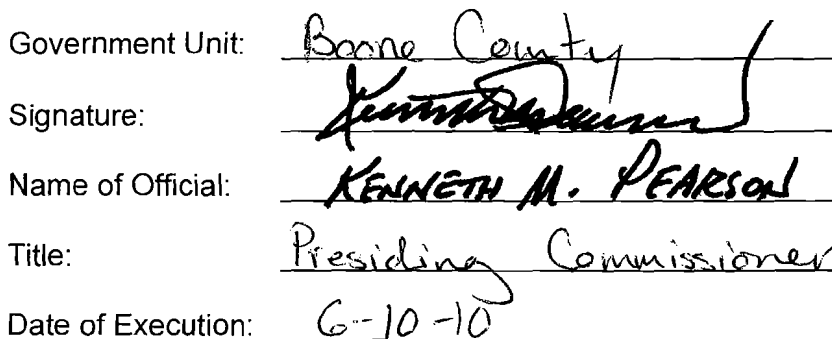 Government Unit: Boone County
Signature:
Name of Official: KENNETH M. PEARSON
Title: Presiding Commissioner
Date of Execution: 6-10-10